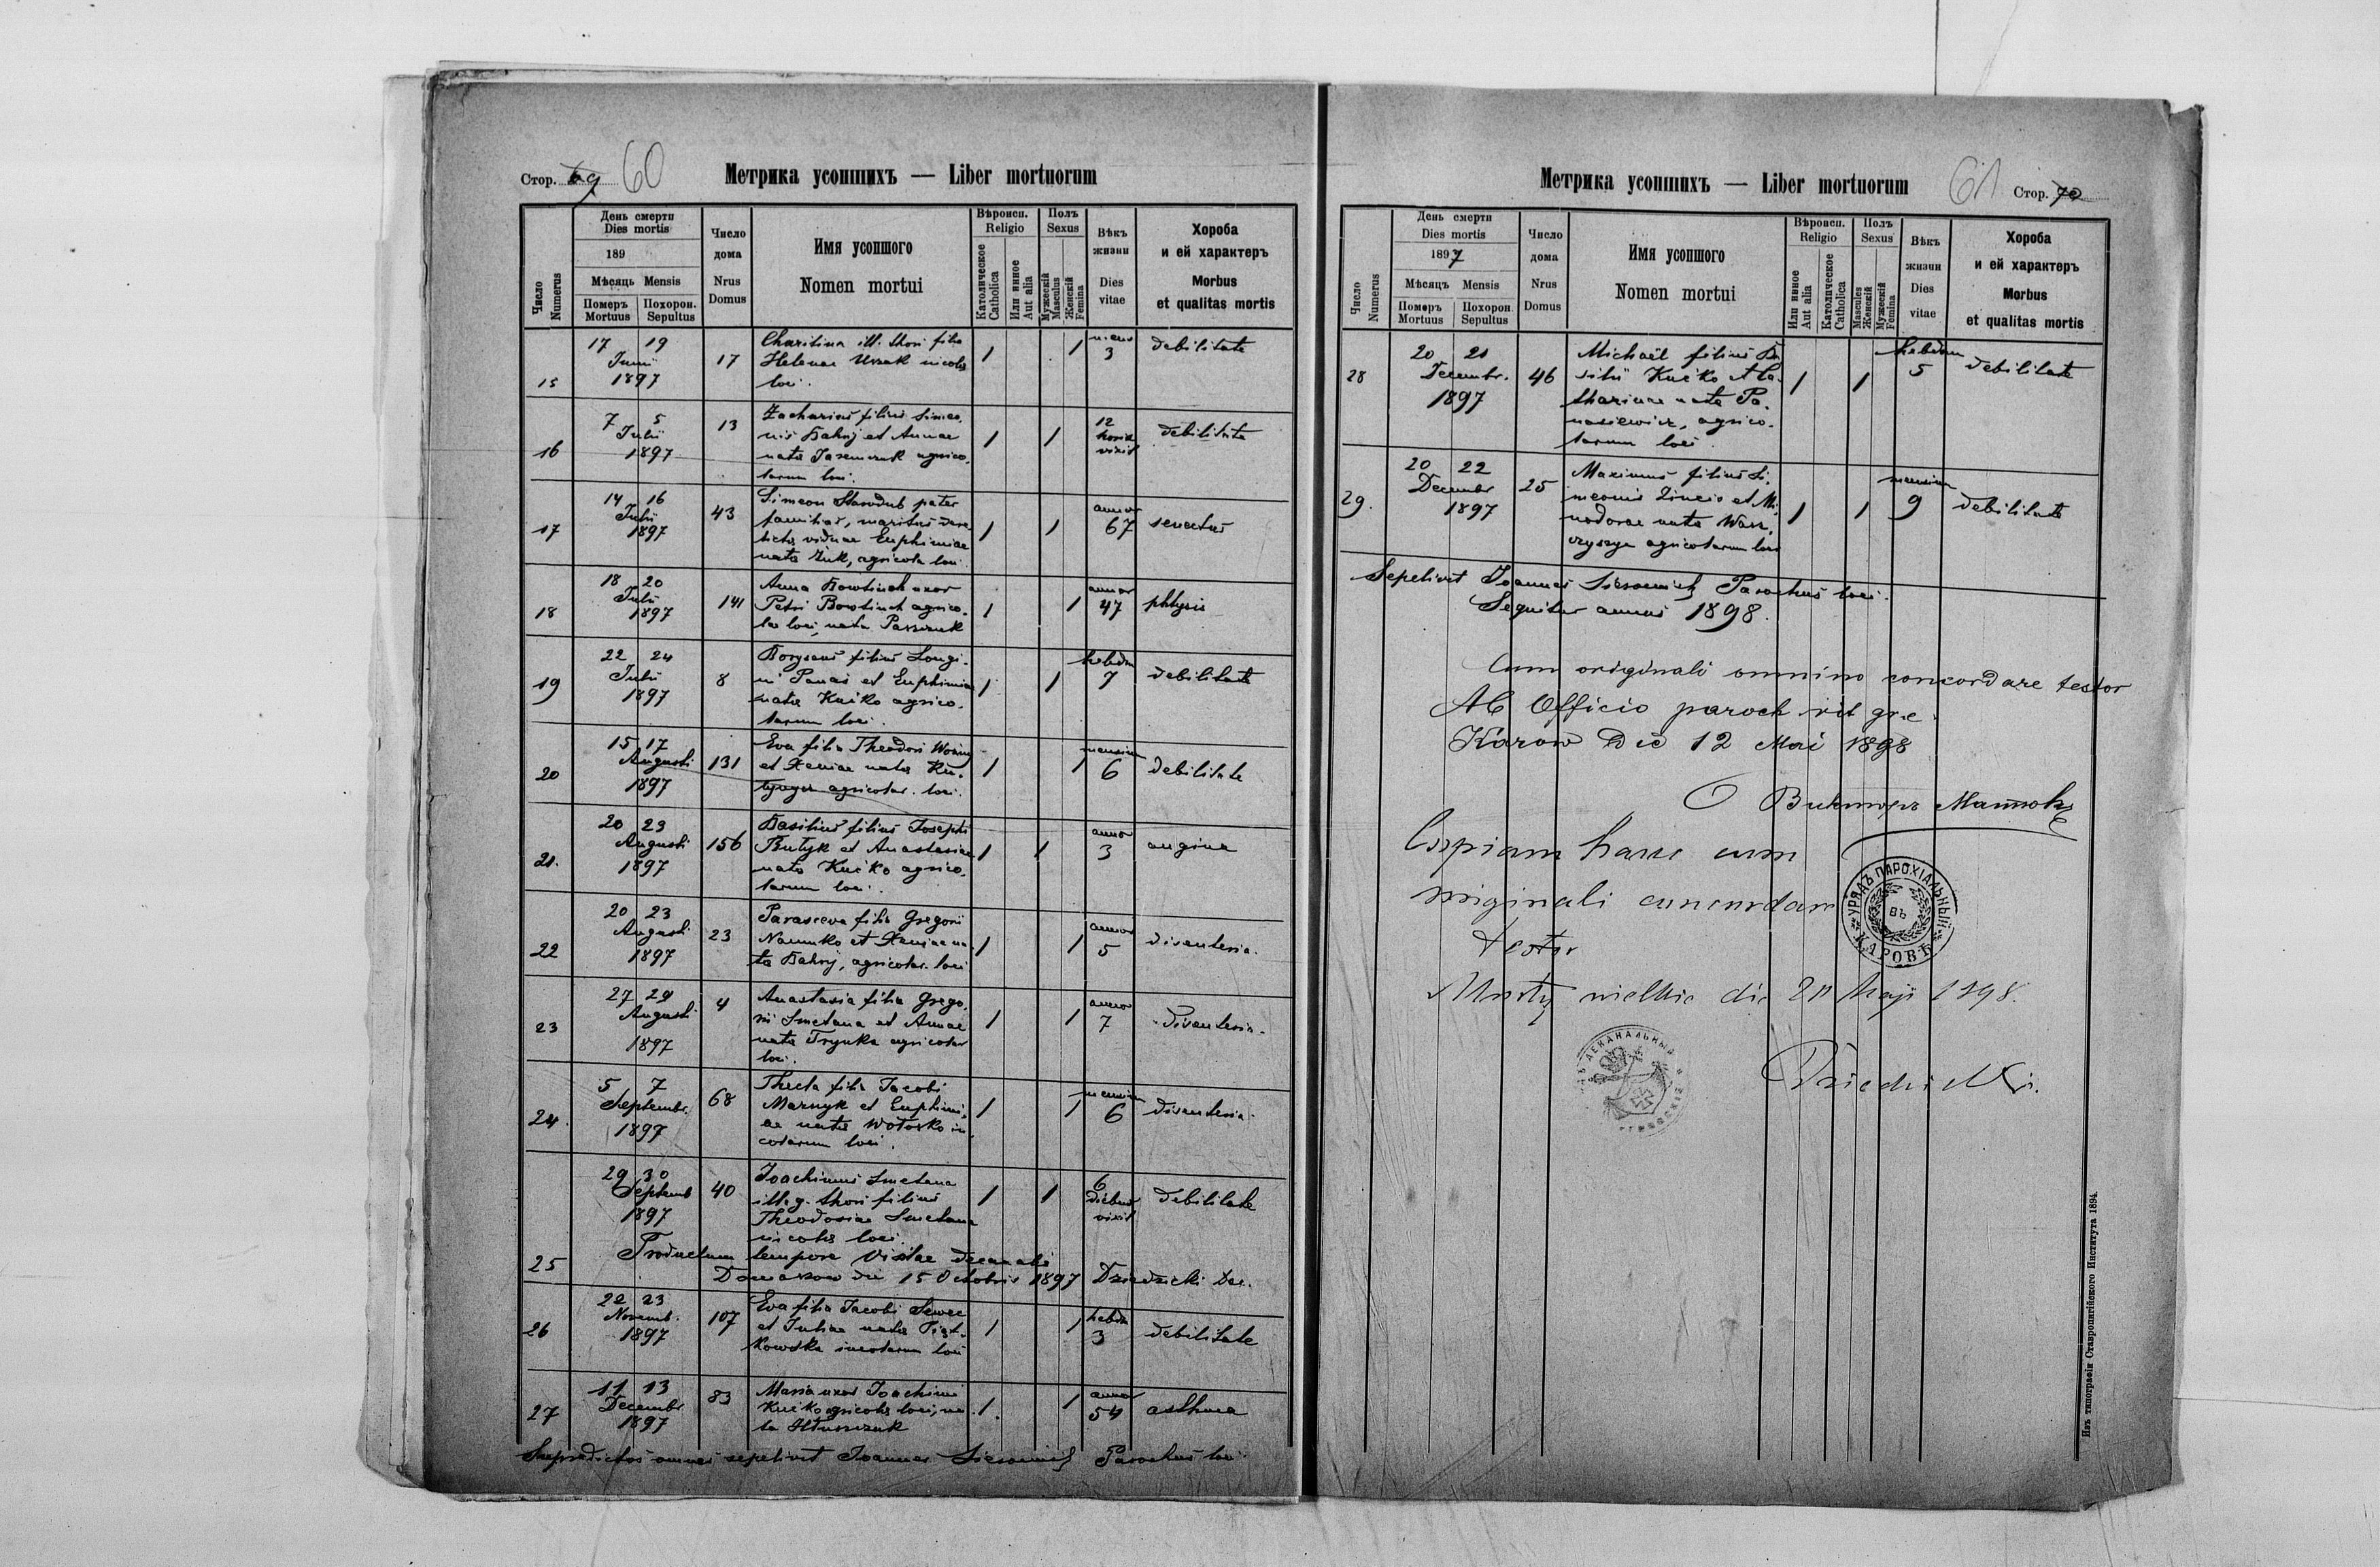 Стор. 69 60
Метрика усопшихъ — Liber mortuorum
Число Numerus
День смерти Dies mortis
189
Мѣсяць Mensis
Померъ Mortuus
Похорон. Sepultus
Число дома Nrus Domus
Имя усопшого
Nomen mortui
Вѣроисп. Religio
Католическое Catholica
Или инное Aut alia
Полъ Sexus
Мужескій Masculus
Женскій Femina
Вѣкъ жизни Dies vitae
Хороба и ей характеръ
Morbus et qualitas mortis
15
17 19
Junii
1897
17
Charitina ill. thori filia
Helenae Urzak incolae
loci.
1
1
3
debilitate
16
7 5
Julii
1897
13
Zacharias filius Simeo-
nis Bahrij et Annae
natae Jaremczuk agrico-
larum loci.
1
1
12
horis
vixit
debilitate
17
14 16
Julii
1897
43
Simeon Starodub pater
familias, maritus dere-
lictae viduae Euphimiae
natae Żuk, agricola loci.
1
1
annor
67
senectus
18
18 20
Julii
1897
141
Anna uxor
Petri agrico-
lae loci, nata Parszczuk
1
1
annor
47
phtysis
19
22 24
Julii
1897
8
Borysaus filius Longi-
ni Panas et Euphimiae
natae Kuśko agrico-
larum loci.
1
1
hebdom
7
debilitate
20
15 17
Augusti
1897
131
Eva filia Theodori
et Xeniae natae
agricolar. loci.
1
1
mensium
6
debilitate
21.
20 23
Augusti
1897
156
Basilius filius Josephi
Butyk et Anastasiae
nata Kuśko agrico-
larum loci.
1
1
annor
3
angina
22
20 23
Augusti
1897
23
Parasceva filia Gregorii
Naumko et Xeniae na-
ta Bahrij, agricolar. loci
1
1
annor
5
disenteria.
23
27 29
Augusti
1897
4
Anastasia filia Grego-
rii Smetana et Annae
natae Trynka agricolar
loci.
1
1
annor
7
disenteria.
24.
5 7
Septembr.
1897
68
Thecla filia Jacobi
Marnyk et Euphimi-
ae natae Wołosko in-
colarum loci.
1
1
mensium
6
disenteria.
25
29 30
Septemb
1897
40
Joachimus Smetana
illeg. thori filius
Theodosiae Smetana
incolae loci.
1
1
6
diebus
vixit
debilitate
Productum tempore visitae decanalis
die 15 Octobris 1897 Dziedzicki Dec.
26
22 23
Novemb.
1897
107
Eva filia Jacobi Szwec
et Juliae natae Piąt-
kowska incolarum loci
1
1
hebdo
3
debilitate
27
11 13
Decembr
1897
83
Maria uxor Joachimi
Kuśko agricolae loci, na-
ta
1.
1
annor
54
asthma
Supradictos omnes sepelivit Joannes Parochus loci.
Метрика усопшихъ — Liber mortuorum
61 Стор. 70
Число Numerus
День смерти Dies mortis
1897
Мѣсяцъ Mensis
Померъ Mortuus
Похорон Sepultus
Число дома Nrus Domus
Имя усопшого
Nomen mortui
Вѣроисп. Religio
Или инное Aut alia
Католическое Catholica
Полъ Sexus
Mascules Женскій
Мужескій Femina
Вѣкъ жизни Dies vitae
Хороба и ей характеръ
Morbus et qualitas mortis
28
20 21
Decembr.
1897
46
Michaël filius Ba-
silii Kuśko et Ca-
tharinae nata Pa-
nasiewicz, agrico-
larum loci.
1
1
hebdom
5
debilitate
29.
20 22
Decembr
1897
25
Maximus filius Si-
meonis et Mi-
nodorae nata
agricolarum loci
1
1
mensium
9
debilitate
Sepelivit Joannes Parochus loci.
Sequitur annus 1898.
Cum originali omnino concordare testor
Ab Officio paroch rit gr. c.
Karow Die 12 Mai 1898
О Викторъ
Copiam hanc cum
originali concordare
testor
Mosty wielkie die 20 Maji 1898.
Dziedzicki
УРЯДЪ ПАРОХІАЛЬНЫЙ ВЪ КАРОВѢ
ДЕКАНАЛЬНЫЙ
Изъ типографіи Ставропигійского Института 1894.